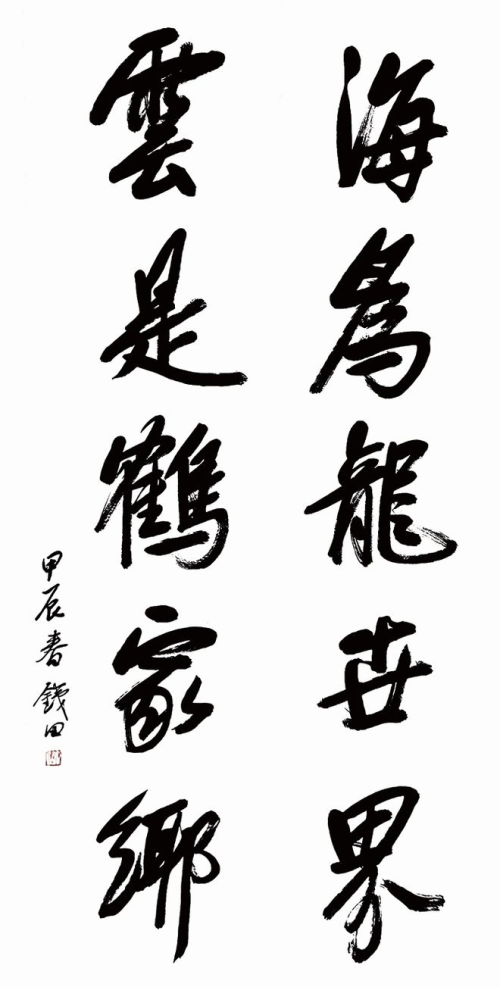 海為龍世界
雲是鶴家鄉
甲辰春 鐵田